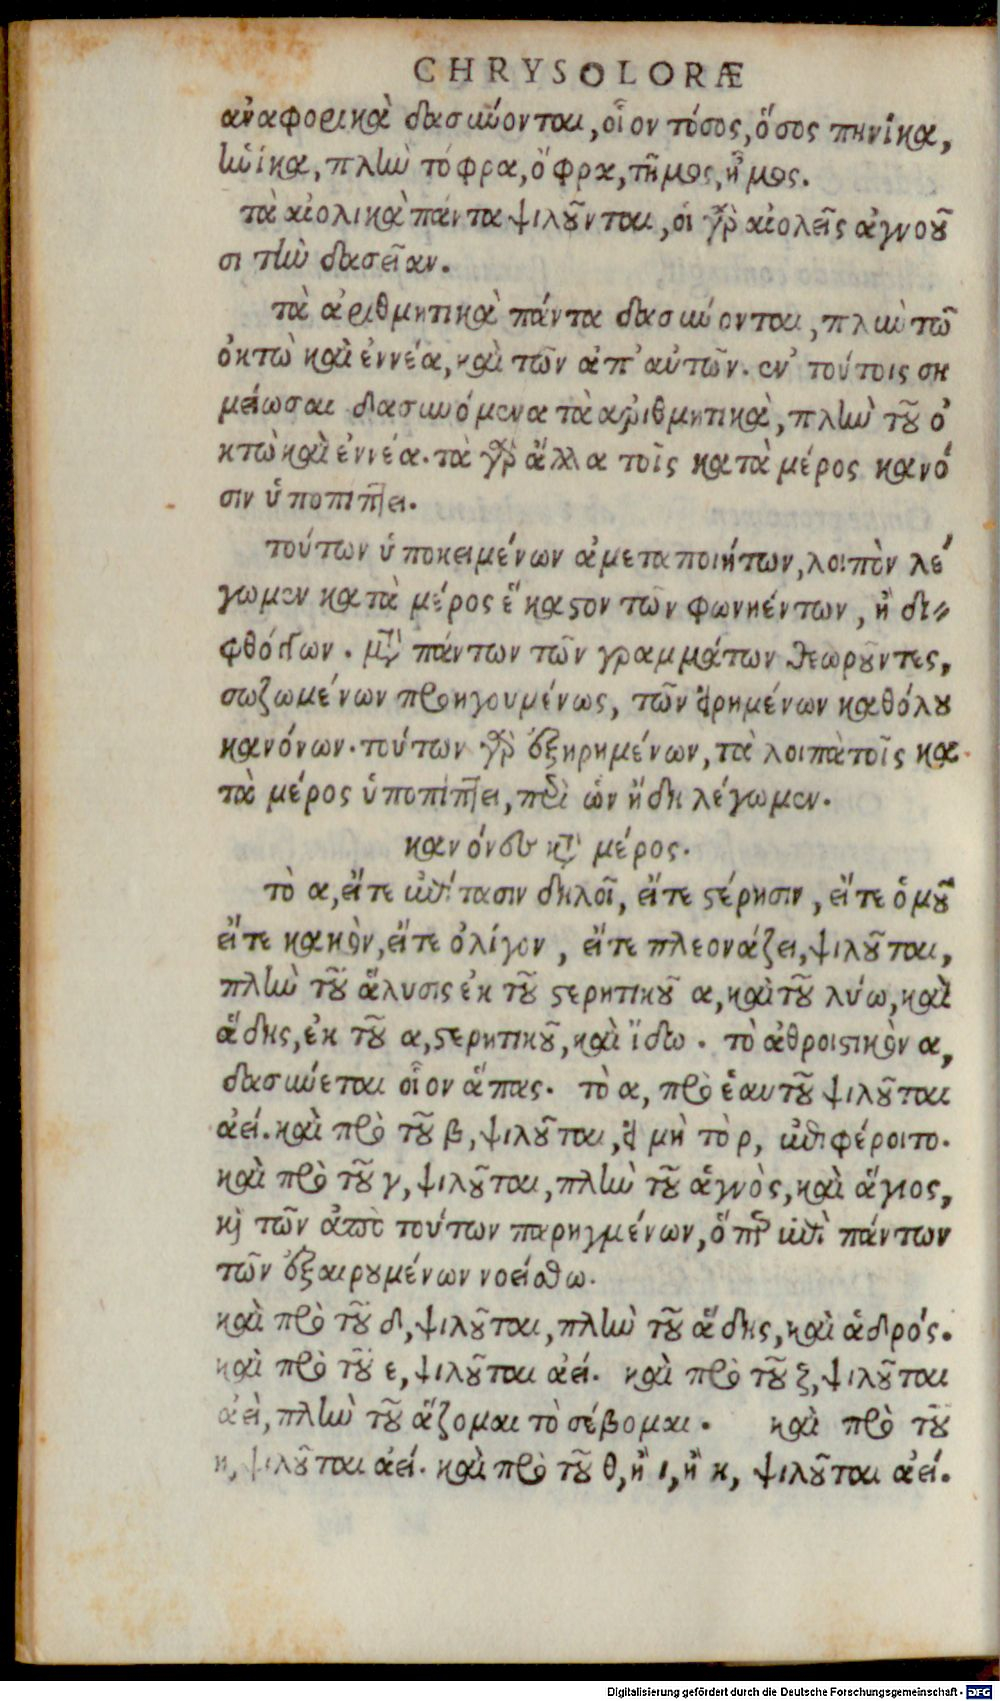 CHRYSOLORÆ
ἀναφορικὰ δασύνονται, οἷον τόσος, ὅσος πηνίκα,
ἡνίκα, πλὴν τόφρα, ὄφρα, τῆμος, ἦμος.
τὰ αἰολικὰ πάντα ψιλοῦνται, οἱ γὰρ αἰολεῖς ἀγνοοῦ
σι τὴν δασεῖαν.
τὰ ἀριθμητικὰ πάντα δασύνονται, πλὴν τῶ
ὀκτὼ καὶ ἐννέα, καὶ τῶν ἀπ' αὐτῶν. ἐν τούτοις ση
μείωσαι δασυνόμενα τὰ ἀριθμητικὰ, πλὴν τοῦ ὀ
κτὼ καὶ ἐννέα. τὰ γὰρ ἄλλα τοῖς κατὰ μέρος κανό
σιν ὑποπίπτει.
τούτων ὑποκειμένων ἀμεταποιήτων, λοιπὸν λέ
γωμεν κατὰ μέρος ἕκαστον τῶν φωνηέντων, ἢ δι⸗
φθόγγων. μετὰ πάντων τῶν γραμμάτων θεωροῦντες,
σωζωμένων προηγουμένως, τῶν εἰρημένων καθόλου
κανόνων. τούτων γὰρ ἐξηρημένων, τὰ λοιπὰ τοῖς κα
τὰ μέρος ὑποπίπτει, περὶ ὧν ἤδη λέγωμεν.
κανόνες κατὰ μέρος.
τὸ α, εἴτε ἐπίτασιν δηλοῖ, εἴτε στέρησιν, εἴτε ὁμοῦ
εἴτε κακὸν, εἴτε ὀλίγον, εἴτε πλεονάζει, ψιλοῦται,
πλὴν τοῦ ἅλυσις ἐκ τοῦ στερητικοῦ α, καὶ τοῦ λύω, καὶ
ἅδης, ἐκ τοῦ α, στερητικοῦ, καὶ ἴδω. τὸ ἀθροιστικὸν α,
δασύνεται οἷον ἅπας. τὸ α, πρὸ ἑαυτοῦ ψιλοῦται
ἀεί. καὶ πρὸ τοῦ β, ψιλοῦται, εἰ μὴ τὸ ρ, ἐπιφέροιτο.
καὶ πρὸ τοῦ γ, ψιλοῦται, πλὴν τοῦ ἁγνὸς, καὶ ἅγιος,
καὶ τῶν ἀπὸ τούτων παρηγμένων, ὅπερ ἐπὶ πάντων
τῶν ἐξαιρουμένων νοείσθω.
καὶ πρὸ τοῦ δ, ψιλοῦται, πλὴν τοῦ ἅδης, καὶ ἁδρός.
καὶ πρὸ τοῦ ε, ψιλοῦται ἀεί. καὶ πρὸ τοῦ ζ, ψιλοῦται
ἀεὶ, πλὴν τοῦ ἅζομαι τὸ σέβομαι. καὶ πρὸ τοῦ
η, ψιλοῦται ἀεί. καὶ πρὸ τοῦ θ, ἢ ι, ἢ κ, ψιλοῦται ἀεί.
Digitalisierung gefördert durch die Deutsche Forschungsgemeinschaft - DFG